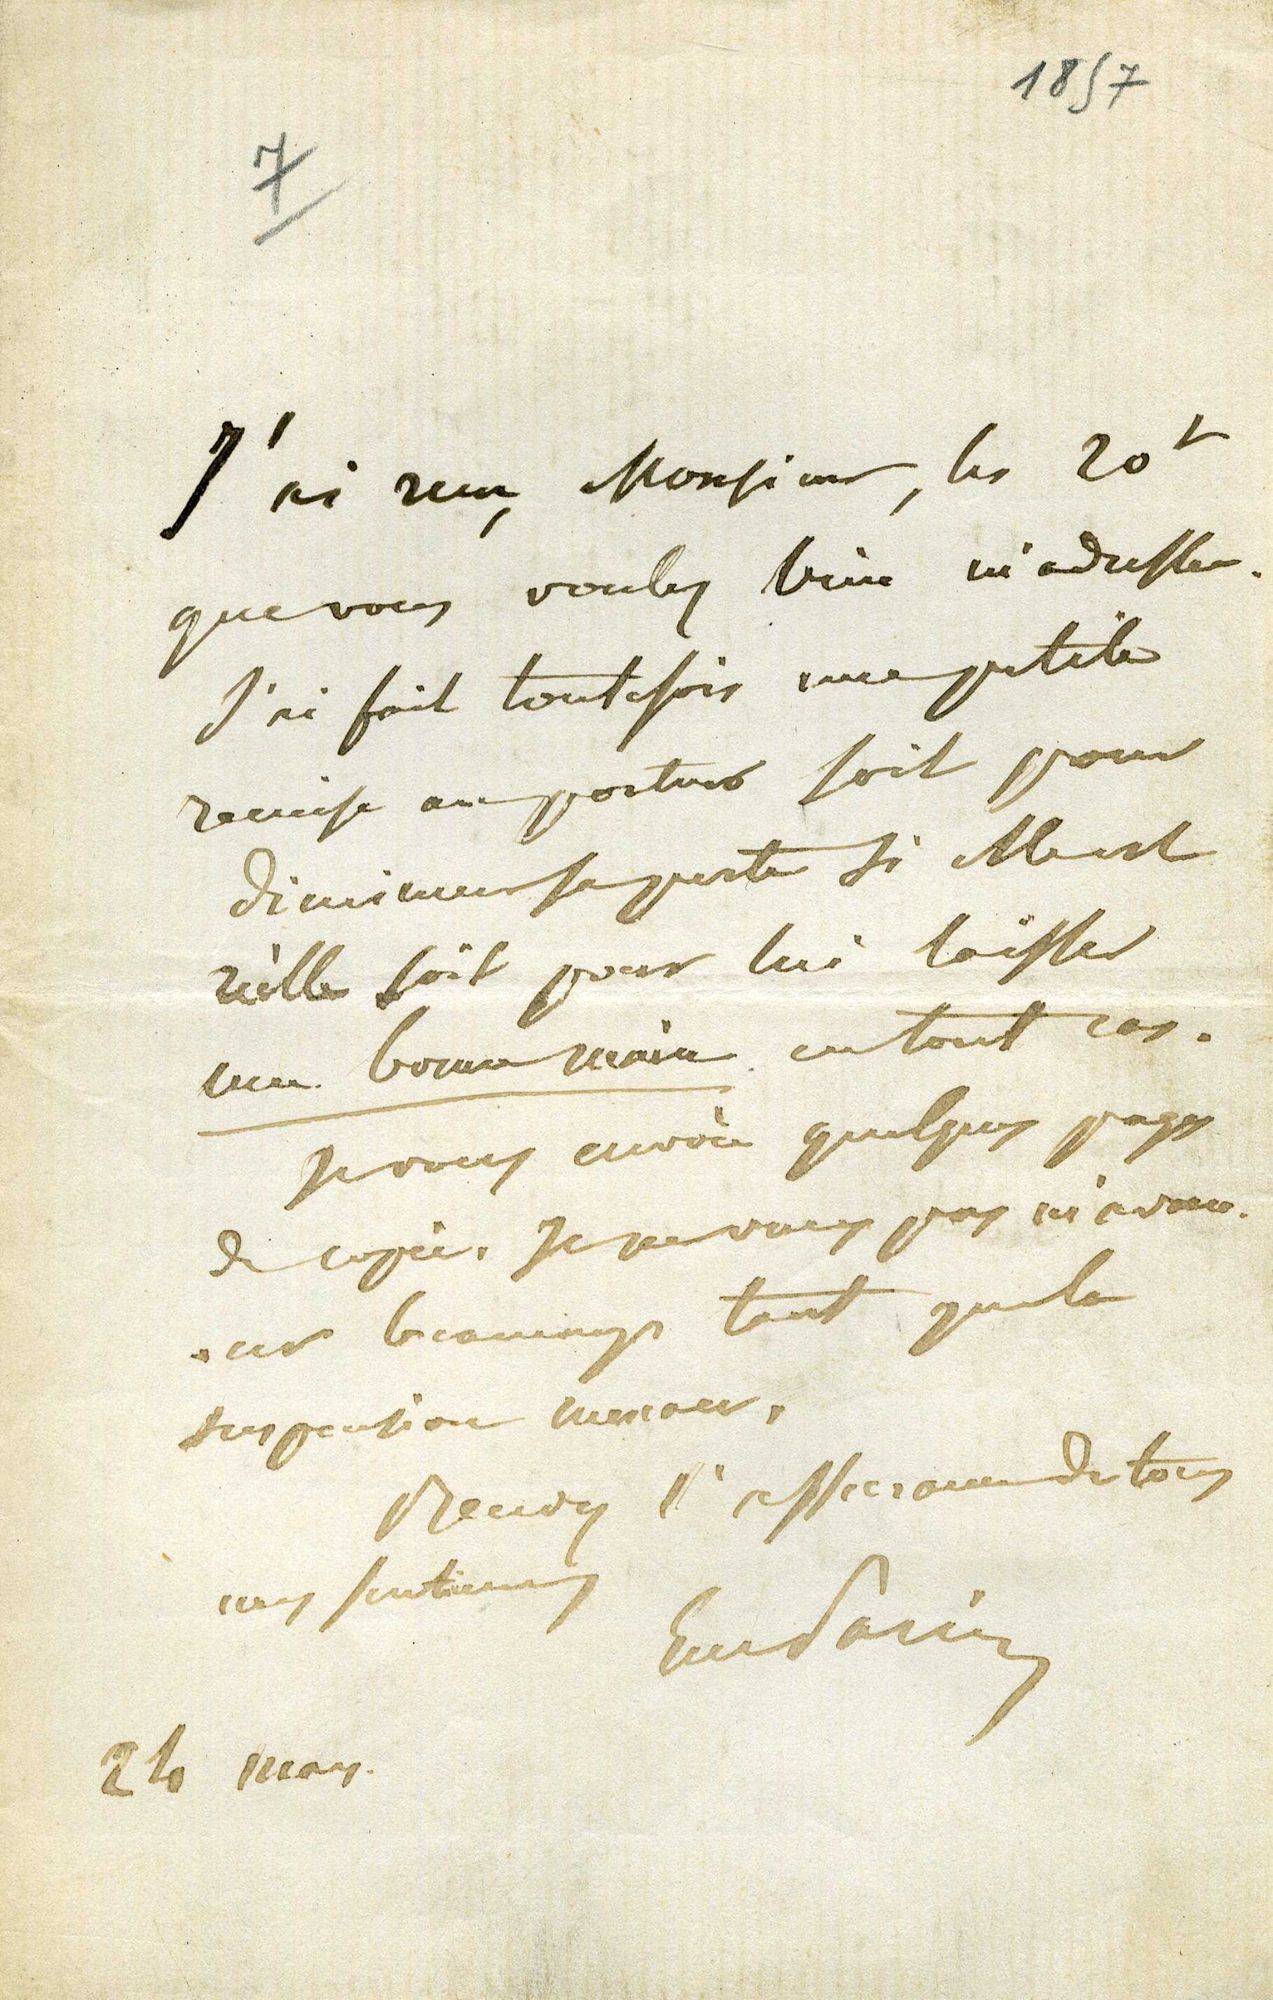 1857
7
J'ai reçu, Monsieur, les 20f
que vous voulez bien m'adresser.
J'ai fait toutefois une petite
remise au porteur soit pour
diminuer sa perte si elle est
réelle soit pour lui laisser
une bonne main en tout cas.
Je vous envoie quelques pages
de copie. Je ne veux pas m'avan-
cer beaucoup tant que la
suspension menace.
Recevez l'assurance de tous
mes sentimens
24 mars.